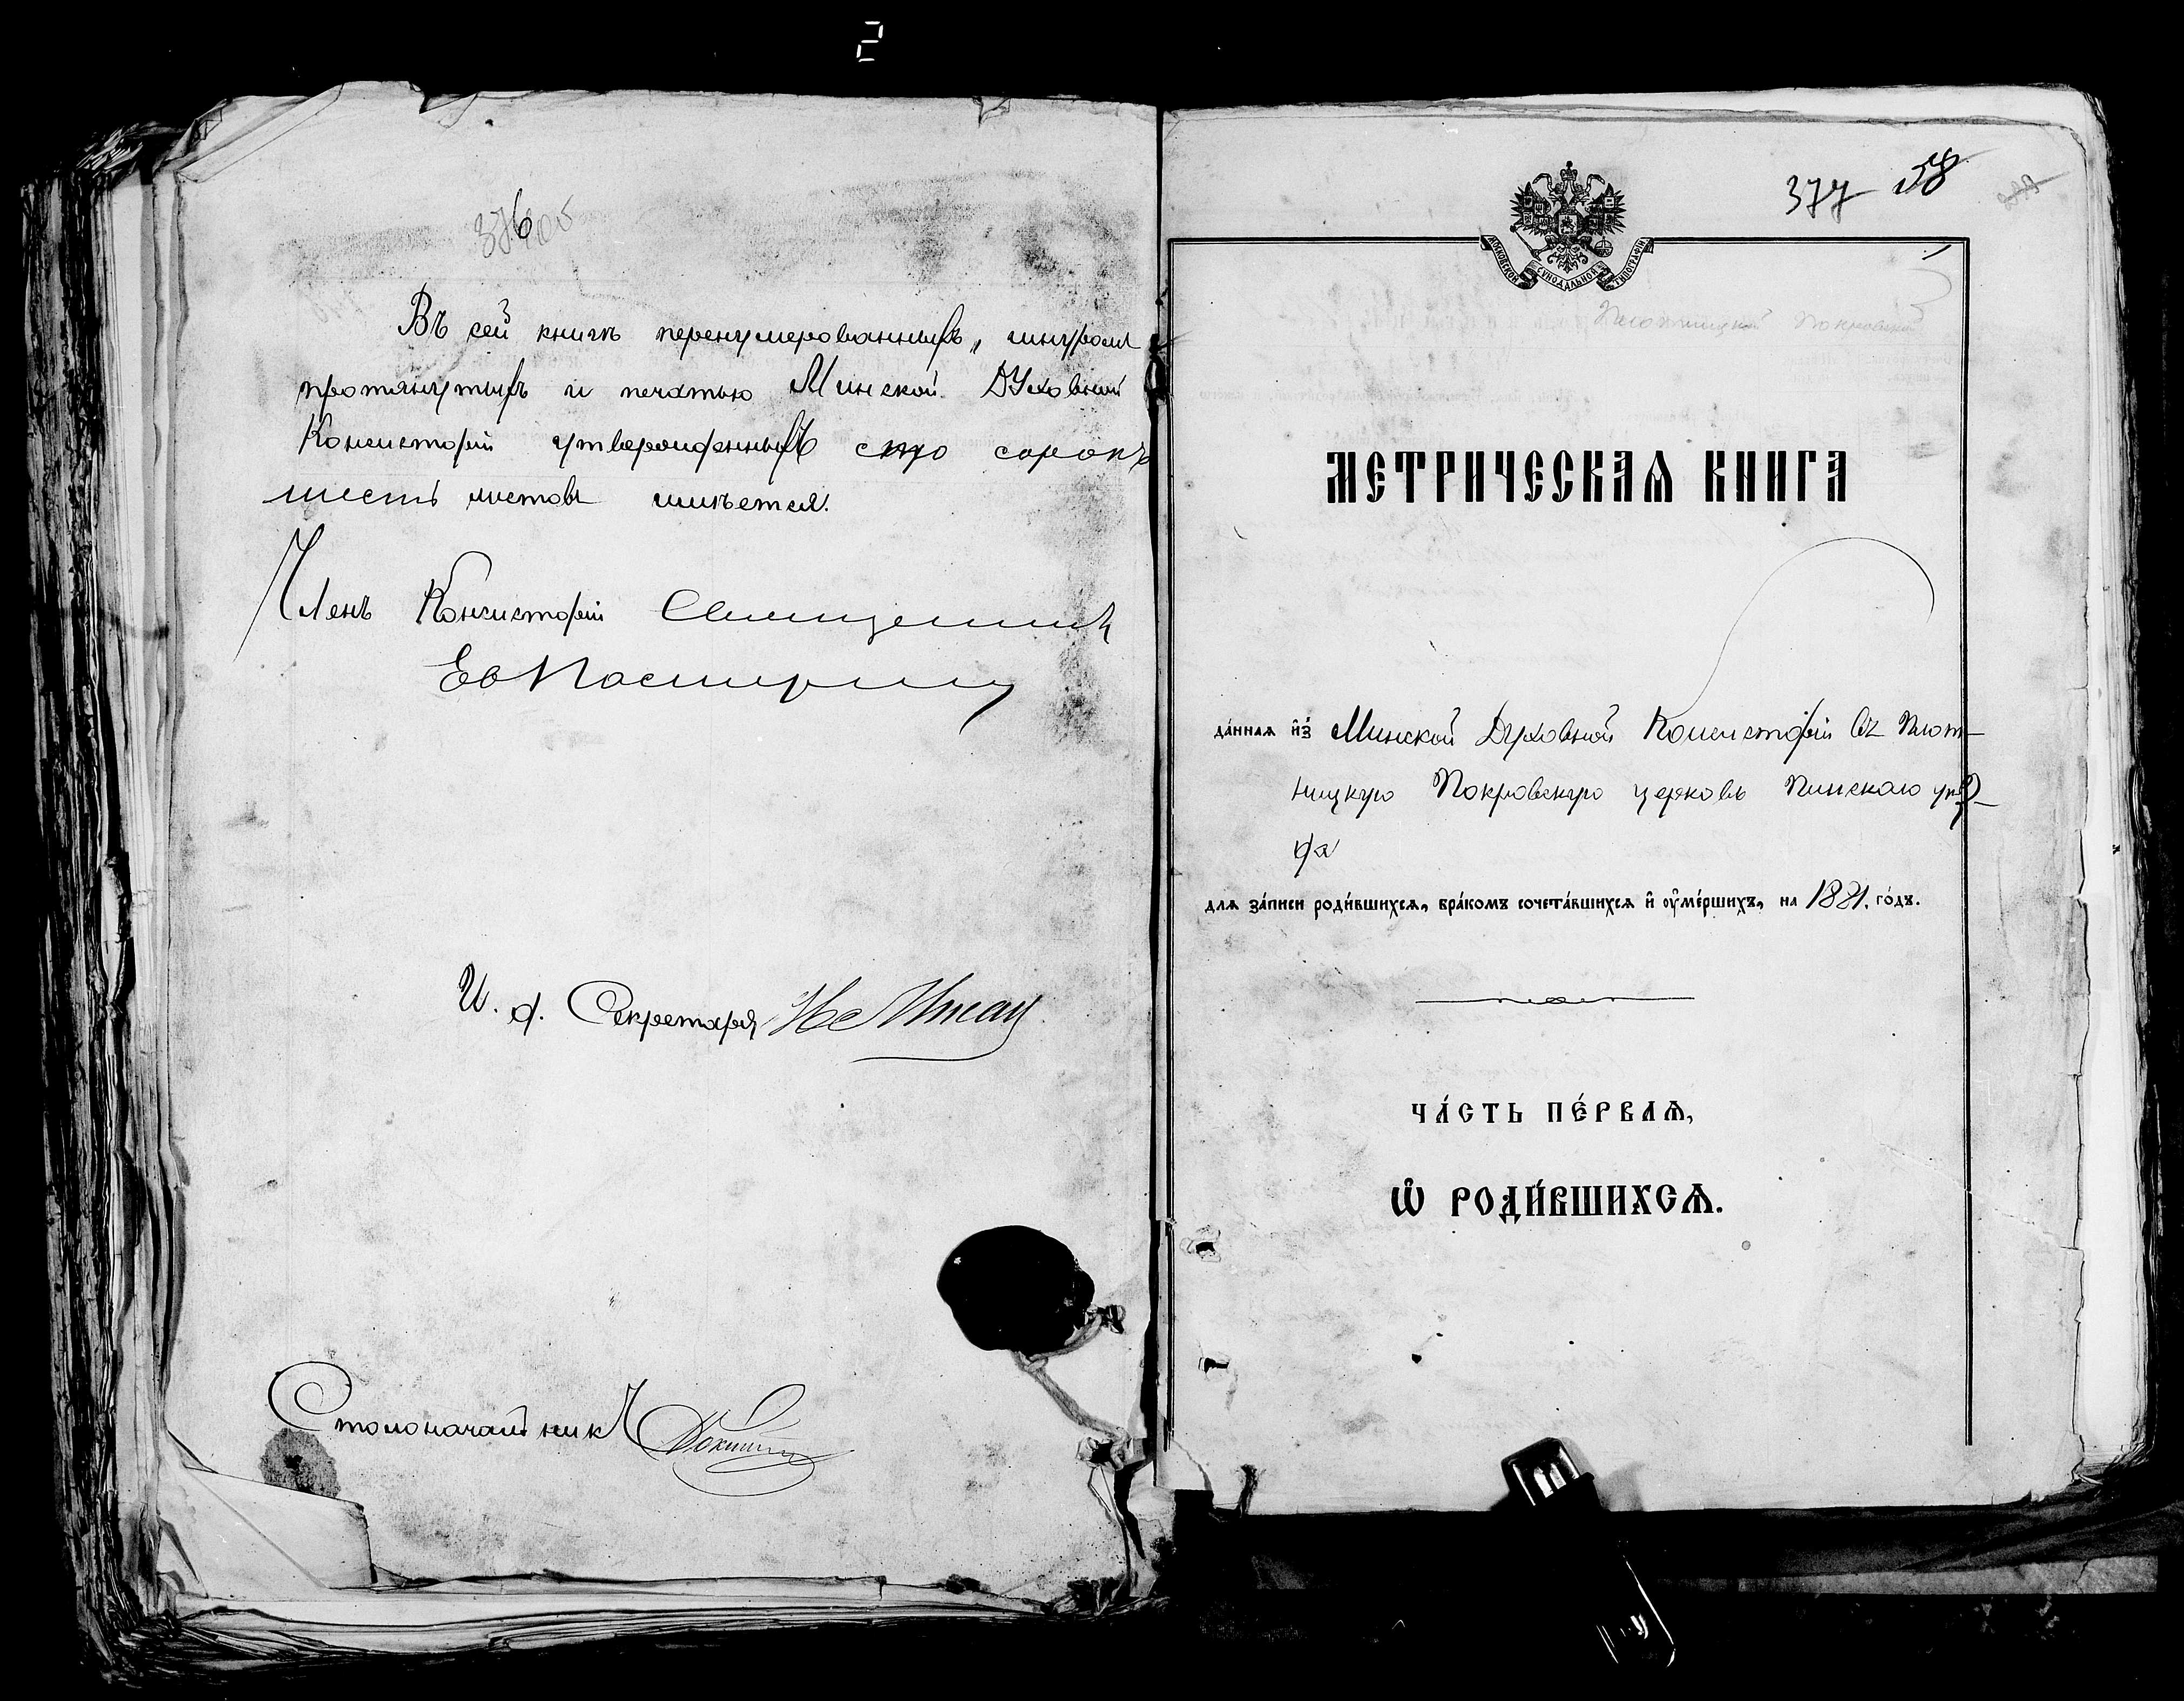 2
376
Въ сей книгѣ перенумерованныхъ, шнуромъ
протянутыхъ и печатью Минской Духовной
Консисторіи утвержденныхъ сто сорокъ
шесть листовъ имѣется.
Членъ Консисторіи Священникъ
И. д. Секретаря
Столоначальникъ
377 58
МОСКОВСКОЙ СУНОДАЛЬНОЙ ТИПОГРАФІИ
Плотницкой Покровской
МЕТРИЧЕСКАѦ КНИГА
да́ннаѧ и҆з̾ Минской Духовной Консисторіи въ Плот-
ницкую Покровскую церковь Пинскаго уѣз-
да
длѧ за́писи роди́вшихсѧ, бра́комъ сочета́вшихсѧ и҆ ѹ҆ме́ршихъ, на 1881. го́дъ.
ЧА́СТЬ ПЕ́РВАѦ,
Ѽ РОДИ́ВШИХСѦ.